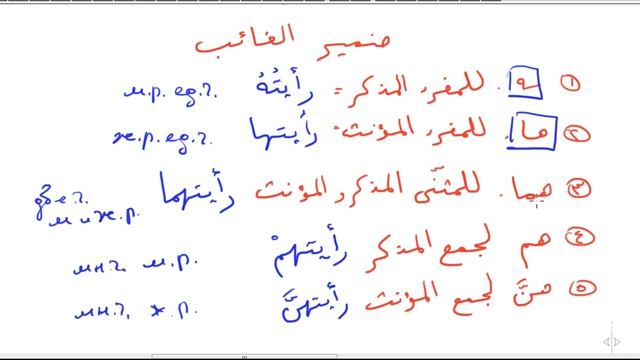 ضمير الغائب
١ ـه. للمفرد المذكر = رأيتُهُ м.р. ед.ч.
٢ ها. للمفرد المؤنث: رأيتها ж.р. ед.ч.
٣ هما. للمثنّى المذكر و المؤنث رأيتهما дв-е.ч. м и ж.р.
٤ هم لجمع المذكر رأيتهمْ мн.ч. м.р.
٥ هنَّ لجمع المؤنث رأيتهنَّ мн.ч. ж.р.